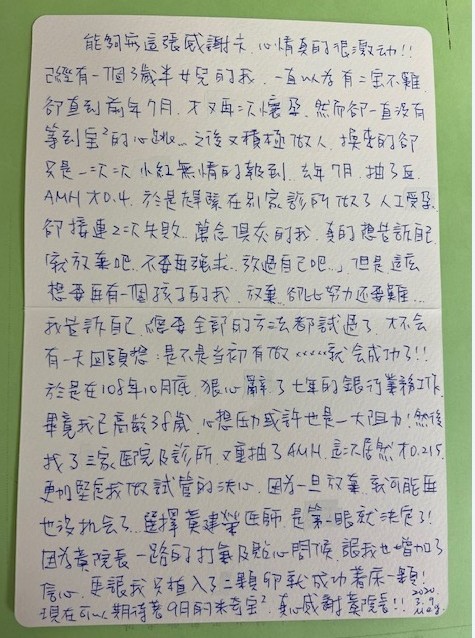 能夠寫這張感謝卡，心情真的很激动!!
已經有一個3歲半女兒的我，一直以為有二宝不難，
卻直到前年7月，才又再次懷孕，然而卻一直沒有
等到宝²的心跳… 之後又積極做人，換來的卻
只是一次一次小紅無情的報到，去年7月，抽了血
AMH才0.4，於是趕緊在別家診所做了人工受孕，
卻接連2次失敗，萬念俱灰的我，真的想告訴自己，
「我放棄吧，不要再強求，放過自己吧」，但是這麼
想要再有一個孩子的我，放棄卻比努力还要難…
我告訴自己，總要全部的方法都試過了，才不会
有一天回頭想：是不是当初有做……就会成功了!!
於是在108年10月底，狠心辭了七年的銀行業務工作，
畢竟我已高齡38歲，心想压力或許也是一大阻力!然後
找了三家医院及診所，又重抽了AMH，這次居然才0.215，
更加堅定我做試管的決心，因為一旦放棄，就可能再
也沒机会了，選擇黃建榮医師，是第一眼就決定了!
因為黃院長一路的打氣及貼心問候，讓我也增加了
信心，更讓我只植入了二顆卵就成功著床一顆!
現在可以期待著9月的來奇宝²，真心感謝黃院長!!
2020
3.9